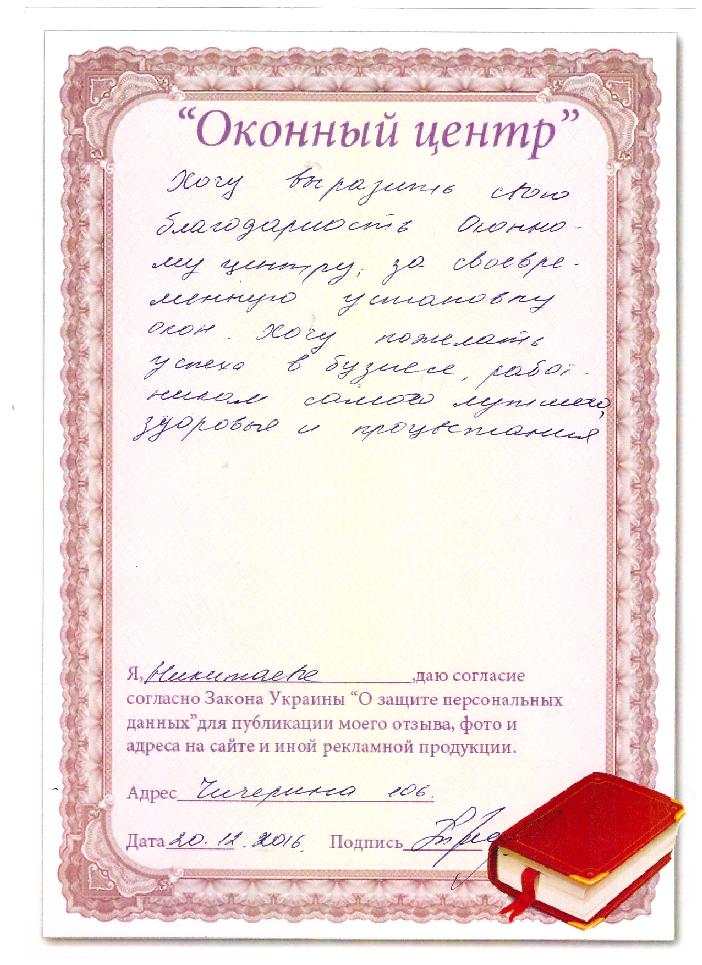 “Оконный центр”
Хочу выразить свою
благодарность Оконно-
му центру, за своевре-
менную установку
окон. Хочу пожелать
успеха в бузнесе, работ-
никам самого лутшего,
здоровья и процветания
Я, ,даю согласие
согласно Закона Украины “О защите персональных
данных”для публикации моего отзыва, фото и
адреса на сайте и иной рекламной продукции.
Адрес Чичерина 106.
Дата 20.12.2016. Подпись